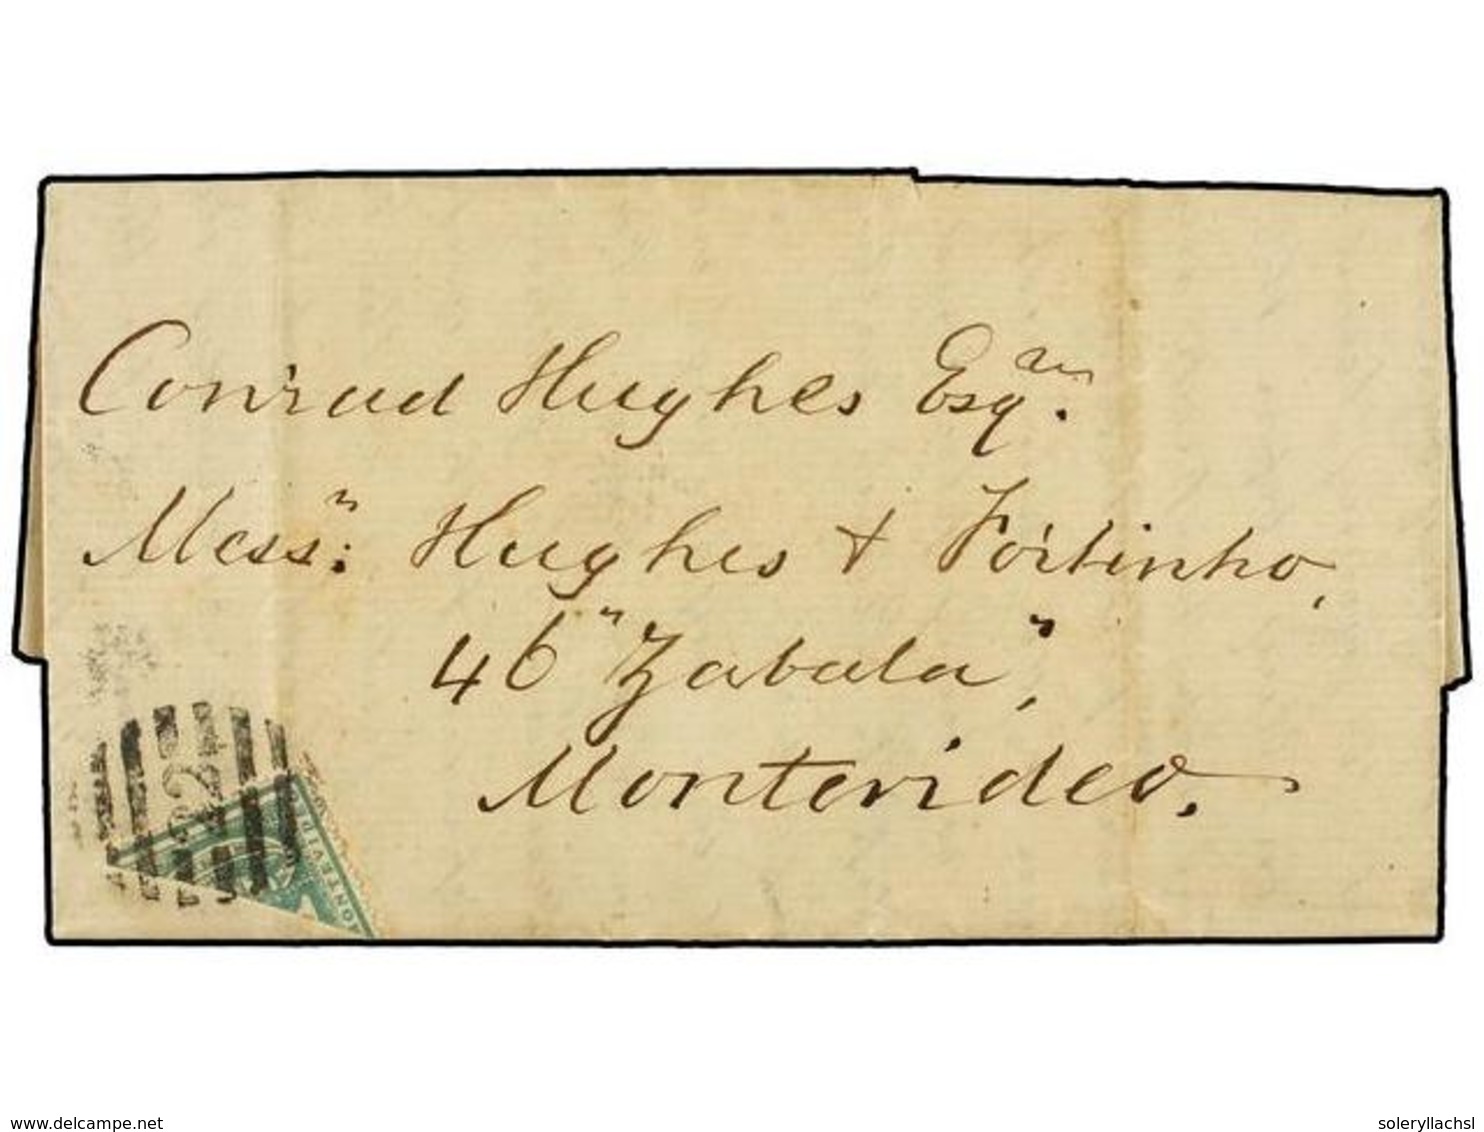 Conrad Hughes Esqre.
Messrs: Hughes & Fortinho,
46 "Zabala",
Montevideo.
32
MONTEVIDEO
delcampe.net
soleryllachsl